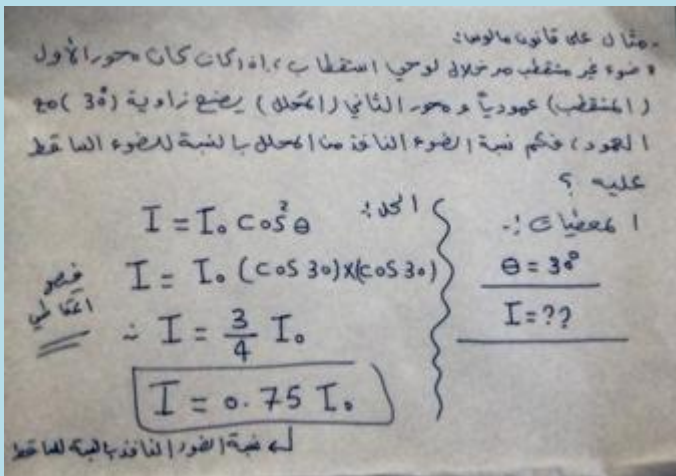 -مثال على قانون مالوس:
* ضوء غير منقطب مر خلال لوحي استقطاب، اذا كان كان محور الأول
(المنقطب) عمودياً و محور الثاني (المحلل) يصنع زاوية (30°) مع
العمود، فكم نسبة الضوء النافذ من المحلل بالنسبة للضوء الساقط
عليه ؟
المعطيات :-
θ = 30°
I = ??
الحل :
I = I₀ cos²θ
I = I₀ (cos 30)×(cos 30)
∴ I = 3/4 I₀
I = 0.75 I₀
نسبة الضوء النافذ بالنسبة للساقط